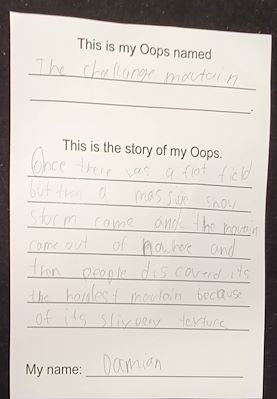 This is my Oops named
The challange moutain
.
This is the story of my Oops.
Once there was a flat field
but then a massive snow
storm came and the moutain
came out of nowhere and
then people discoverd its
the hardest moutain because
of its slivpery texture
My name: Damian